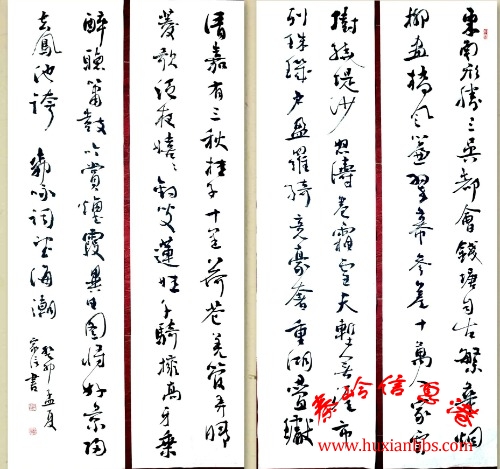 東南形勝三吳都會錢塘自古繁華烟
柳畫橋風簾翠幕參差十萬人家雲
樹繞堤沙怒濤卷霜雪天塹無涯市
列珠璣戶盈羅綺競豪奢重湖疊巘
清嘉有三秋桂子十里荷花羌管弄晴
菱歌泛夜嬉嬉釣叟蓮娃千騎擁高牙乘
醉聽簫鼓吟賞煙霞異日圖將好景歸
去鳳池誇 詞望海潮
癸卯孟夏
書
www.huxianbbs.com